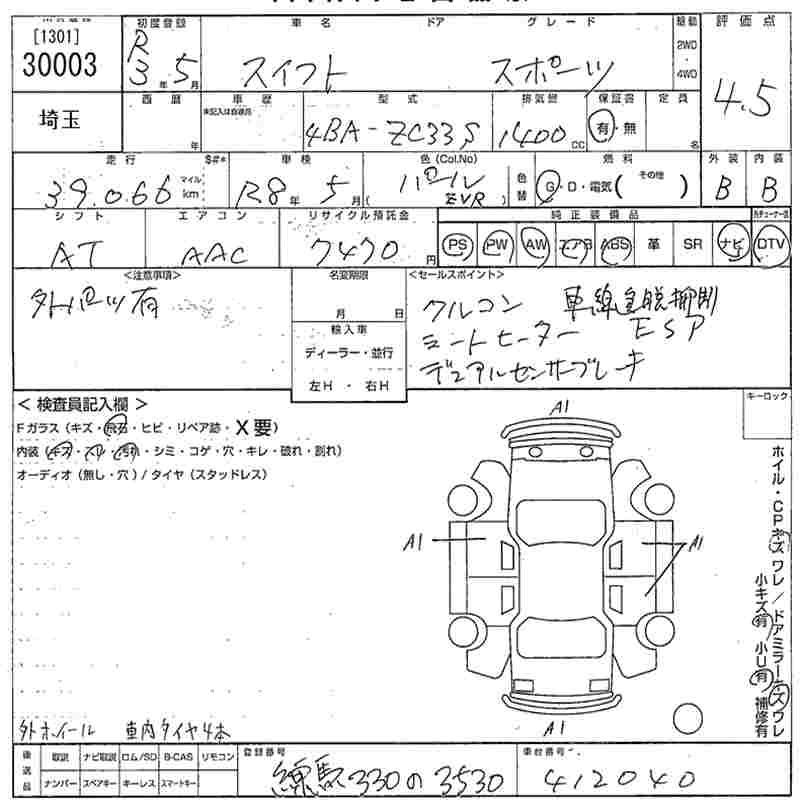 [1301]
30003
初度登録
R
3年 5月
車名 ドア グレード
スイフト スポーツ
駆動
2WD
・
4WD
評価点
4.5
埼玉
西暦
年
車歴
未記入は自家用
型式
4BA-ZC33S
排気量
1400 CC
保証書
有・無
定員
名
走行 $#*
39,066 マイル km
車検
R8年 5月
色(Col.No)
パール
(ZVR)
色替
燃料
G・D・電気( その他 )
外装
B
内装
B
シフト
AT
エアコン
AAC
リサイクル預託金
7470 円
純正装備品
PS PW AW エアB ABS 革 SR ナビ
DTV
<注意事項>
外パーツ有
名変期限
月 日
輸入車
ディーラー・並行
左H ・ 右H
<セールスポイント>
クルコン 車線逸脱抑制
シートヒーター ESP
デュアルセンサーブレーキ
< 検査員記入欄 >
Fガラス(キズ・飛石・ヒビ・リペア跡・X要)
内装(キズ・スリ・汚れ・シミ・コゲ・穴・キレ・破れ・割れ)
オーディオ(無し・穴)/タイヤ(スタッドレス)
キーロック
A1
A1
A1
A1
ホイル・CPキズ ワレ/ドアミラーキズワレ
小キズ有 小U有 補修有
外ホイール 車内タイヤ4本
後送品
取説 ナビ取説 ロム/SD B-CAS リモコン
ナンバー スペアキー キーレス スマートキー
登録番号
練馬330の3530
車台番号
412040